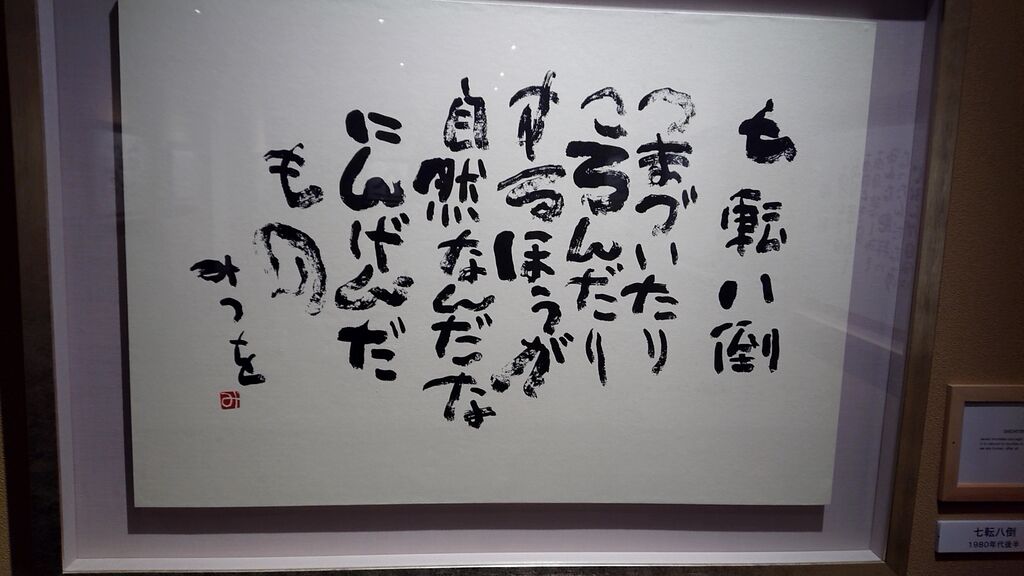 七転八倒
つまづいたり
ころんだり
するほうが
自然なんだな
にんげんだ
もの
みつを
み
七転八倒
1980年代後半